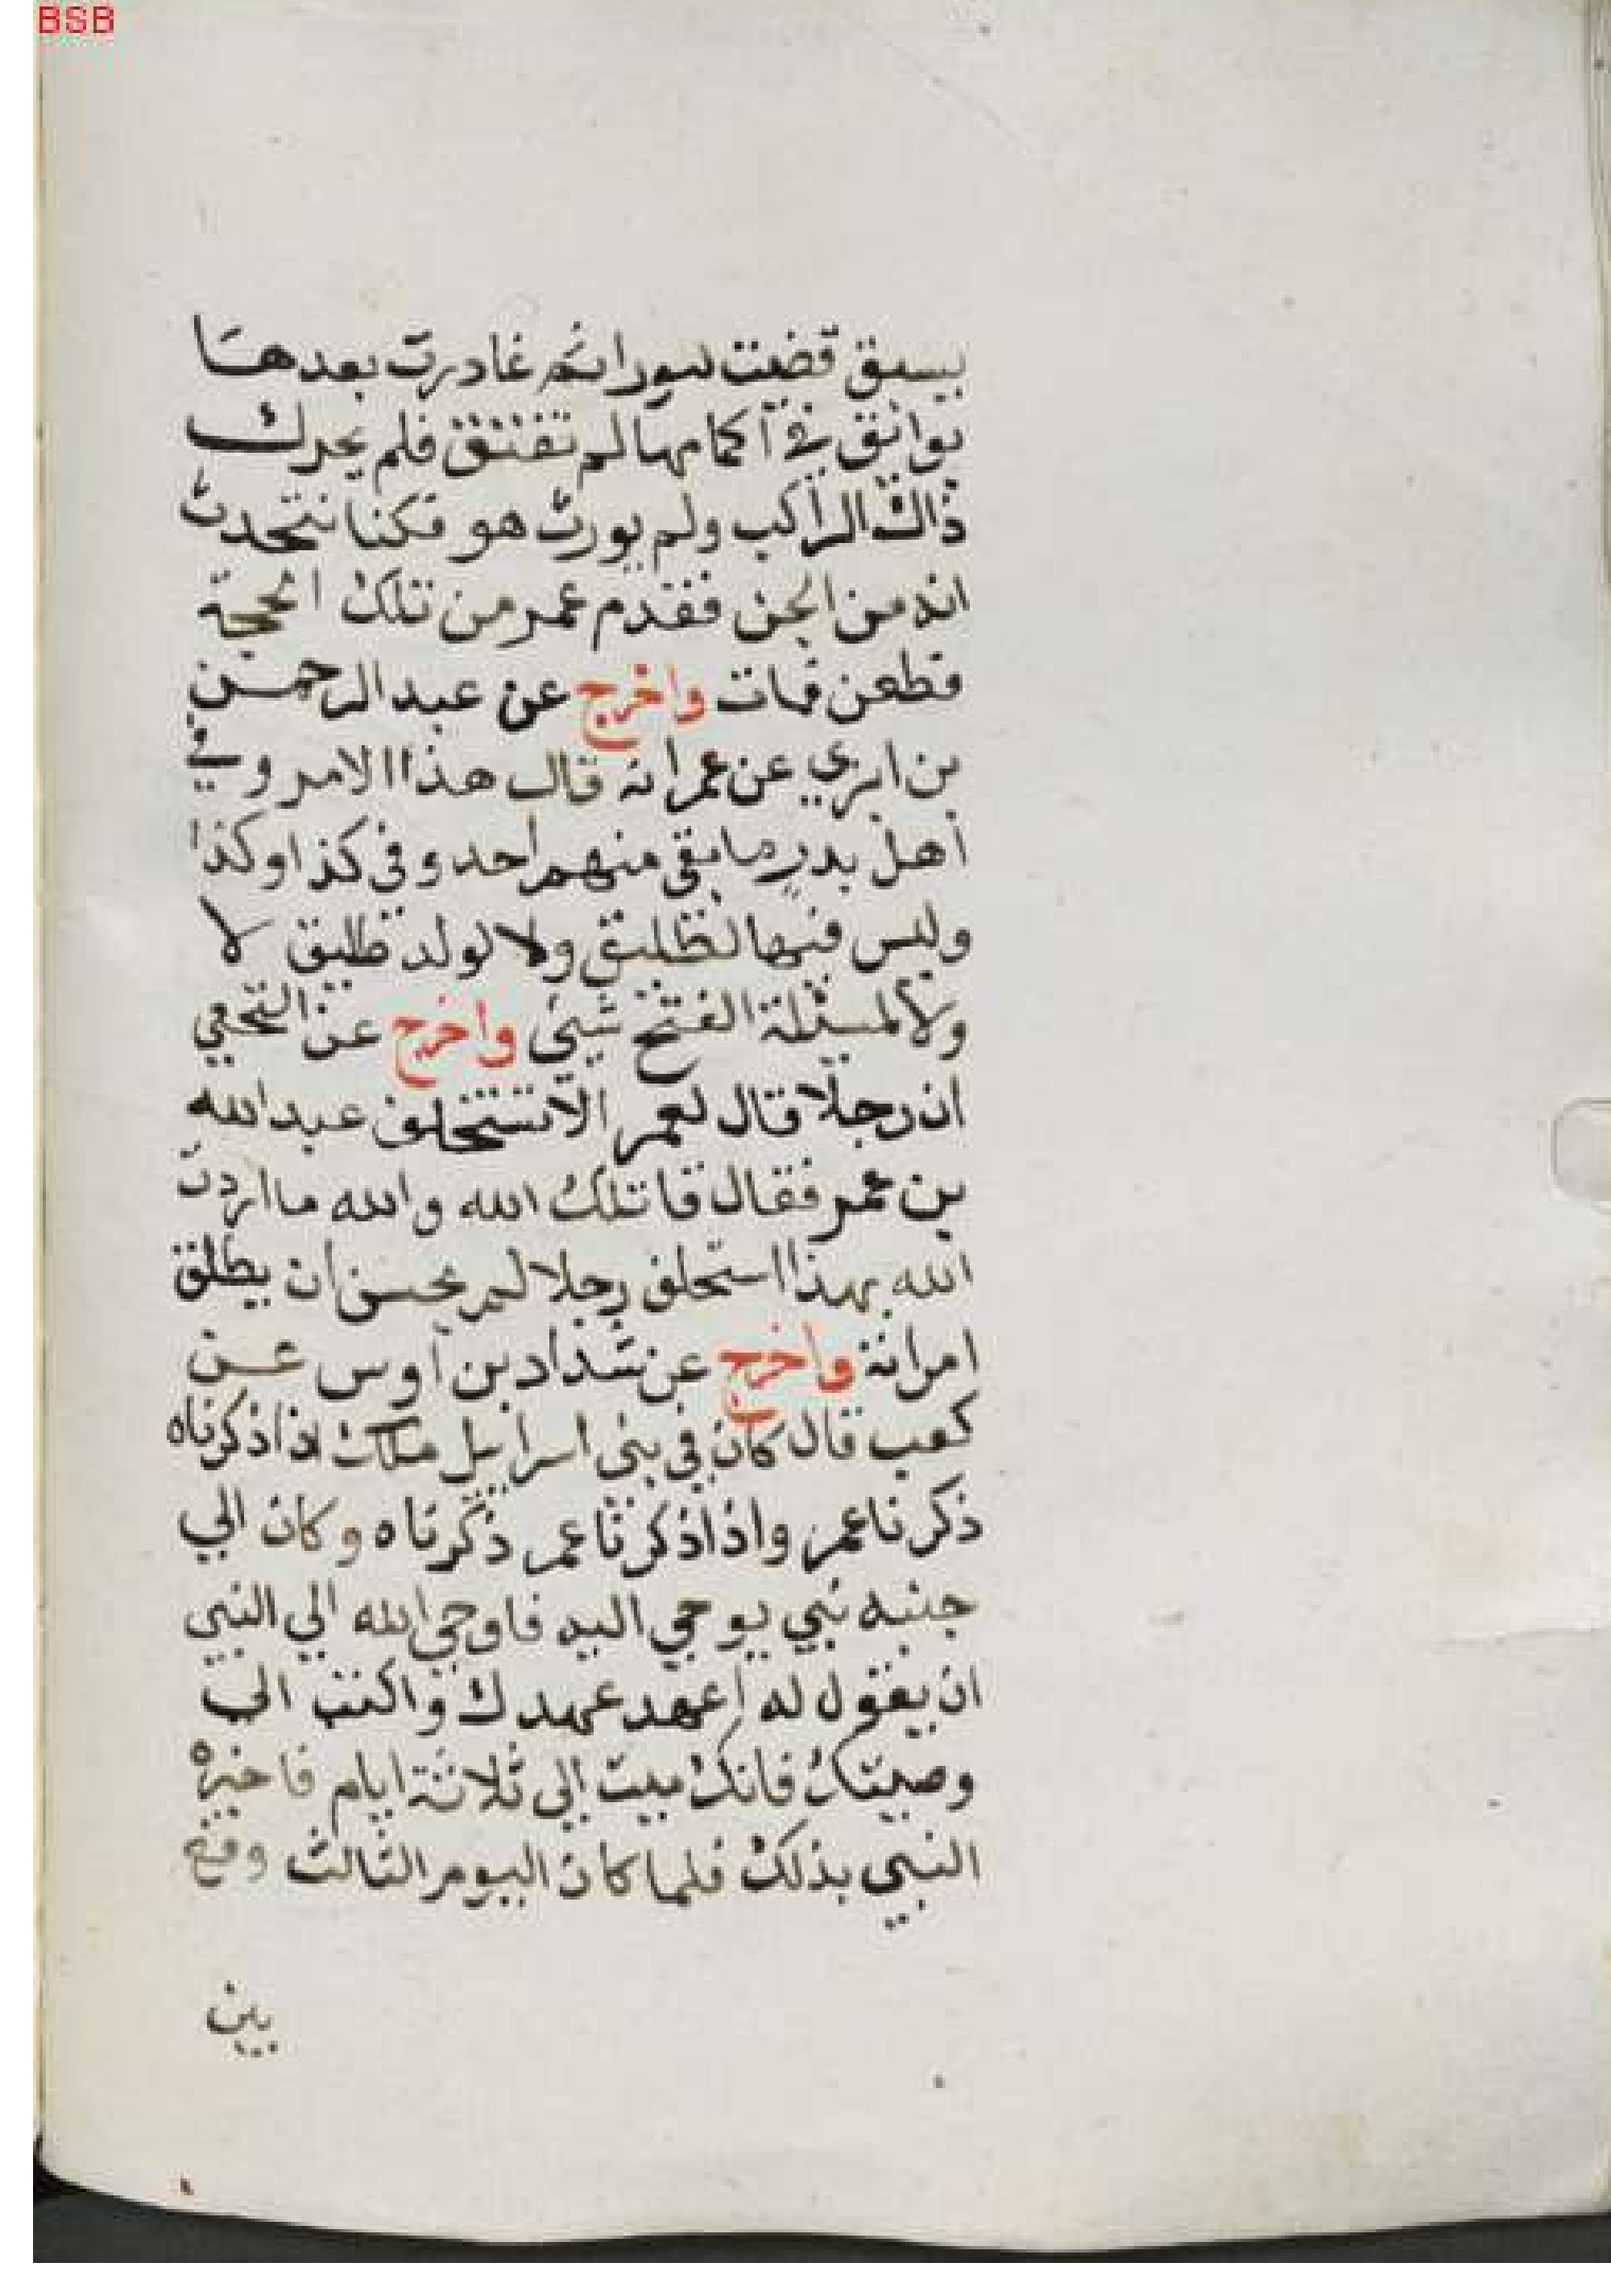 BSB
يسبق قضيت امورا ثم غادرت بعدها
بوائق في اكمامها لم تفتق فلم يحرك
ذاك الراكب ولم يورث هو فكنا نتحدث
انه من الجن فقدم عمر من تلك الحجة
فطعن فمات واخرج عن عبد الرحمن
بن ابزي عن عمر انه قال هذا الامر وفي
اهل بدر ما بقى منهم احد وفى كذا وكذا
وليس فيها لطليق ولا لولد طليق لا
ولا لمسئلة الفتح شيئ واخرج عن النخعي
ان رجلا قال لعمر الا تستخلف عبد الله
بن عمر فقال قاتلك الله والله ما اردت
الله بهذا استخلف رجلا لم يحسن ان يطلق
امراته واخرج عن شداد بن اوس عن
كعب قال كان في بني اسرايل ملك اذا ذكرناه
ذكرنا عمر واذا ذكرنا عمر ذكرناه وكان الي
جنبه نبي يوحي اليه فاوحي الله الي النبي
ان يقول له اعهد عهدك واكتب الي
وصيتك فانك ميت الي ثلاثة ايام فاخبره
النبي بذلك فلما كان اليوم الثالث وقع
بين